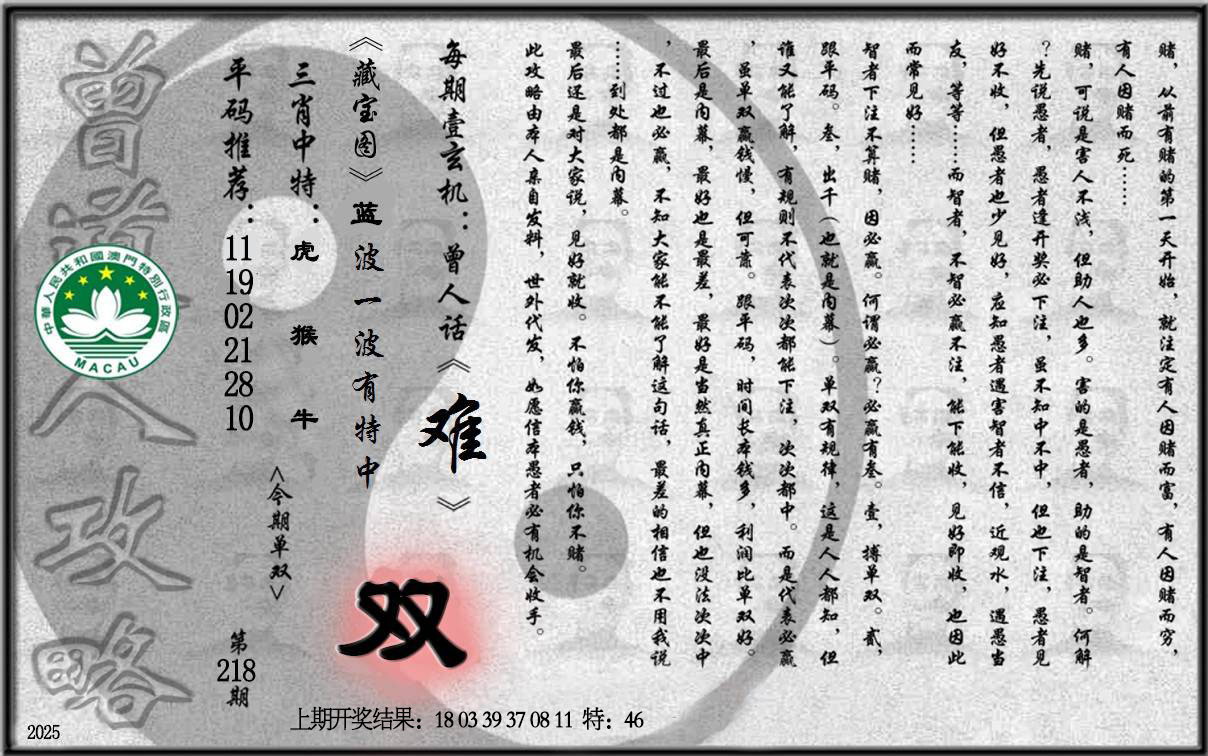 赌，从前有赌的第一天开始，就注定有人因赌而富，有人因赌而穷，
有人因赌而死……
赌，可说是害人不浅，但助人也多。害的是愚者，助的是智者。何解
？先说愚者，愚者逢开奖必下注，虽不知中不中，但也下注，愚者见
好不收，但愚者也少见好，应知愚者遇害智者不信，近观水，遇愚当
友，等等……而智者，不智必赢不注，能下能收，见好即收，也因此
而常见好……
智者下注不算赌，因必赢。何谓必赢？必赢有叁。壹，搏单双。贰，
跟平码。叁，出千（也就是内幕）。单双有规律，这是人人都知，但
谁又能了解，有规则不代表次次都能下注，次次都中。而是代表必赢
，虽单双赢钱慢，但可靠。跟平码，时间长本钱多，利润比单双好。
最后是内幕，最好也是最差，最好是当然真正内幕，但也没法次次中
，不过也必赢，不知大家能不能了解这句话，最差的相信也不用我说
……到处都是内幕。
最后还是对大家说，见好就收。不怕你赢钱，只怕你不赌。
此攻略由本人亲自发料，世外代发，如愿信本愚者必有机会收手。
每期壹玄机：曾人话《难》
《藏宝图》蓝波一波有特中
双
三肖中特：虎 猴 牛
<今期单双>
平码推荐：11 19 02 21 28 10
第218期
曾道人攻略
中華人民共和國澳門特別行政區
MACAU
上期开奖结果：18 03 39 37 08 11 特：46
2025